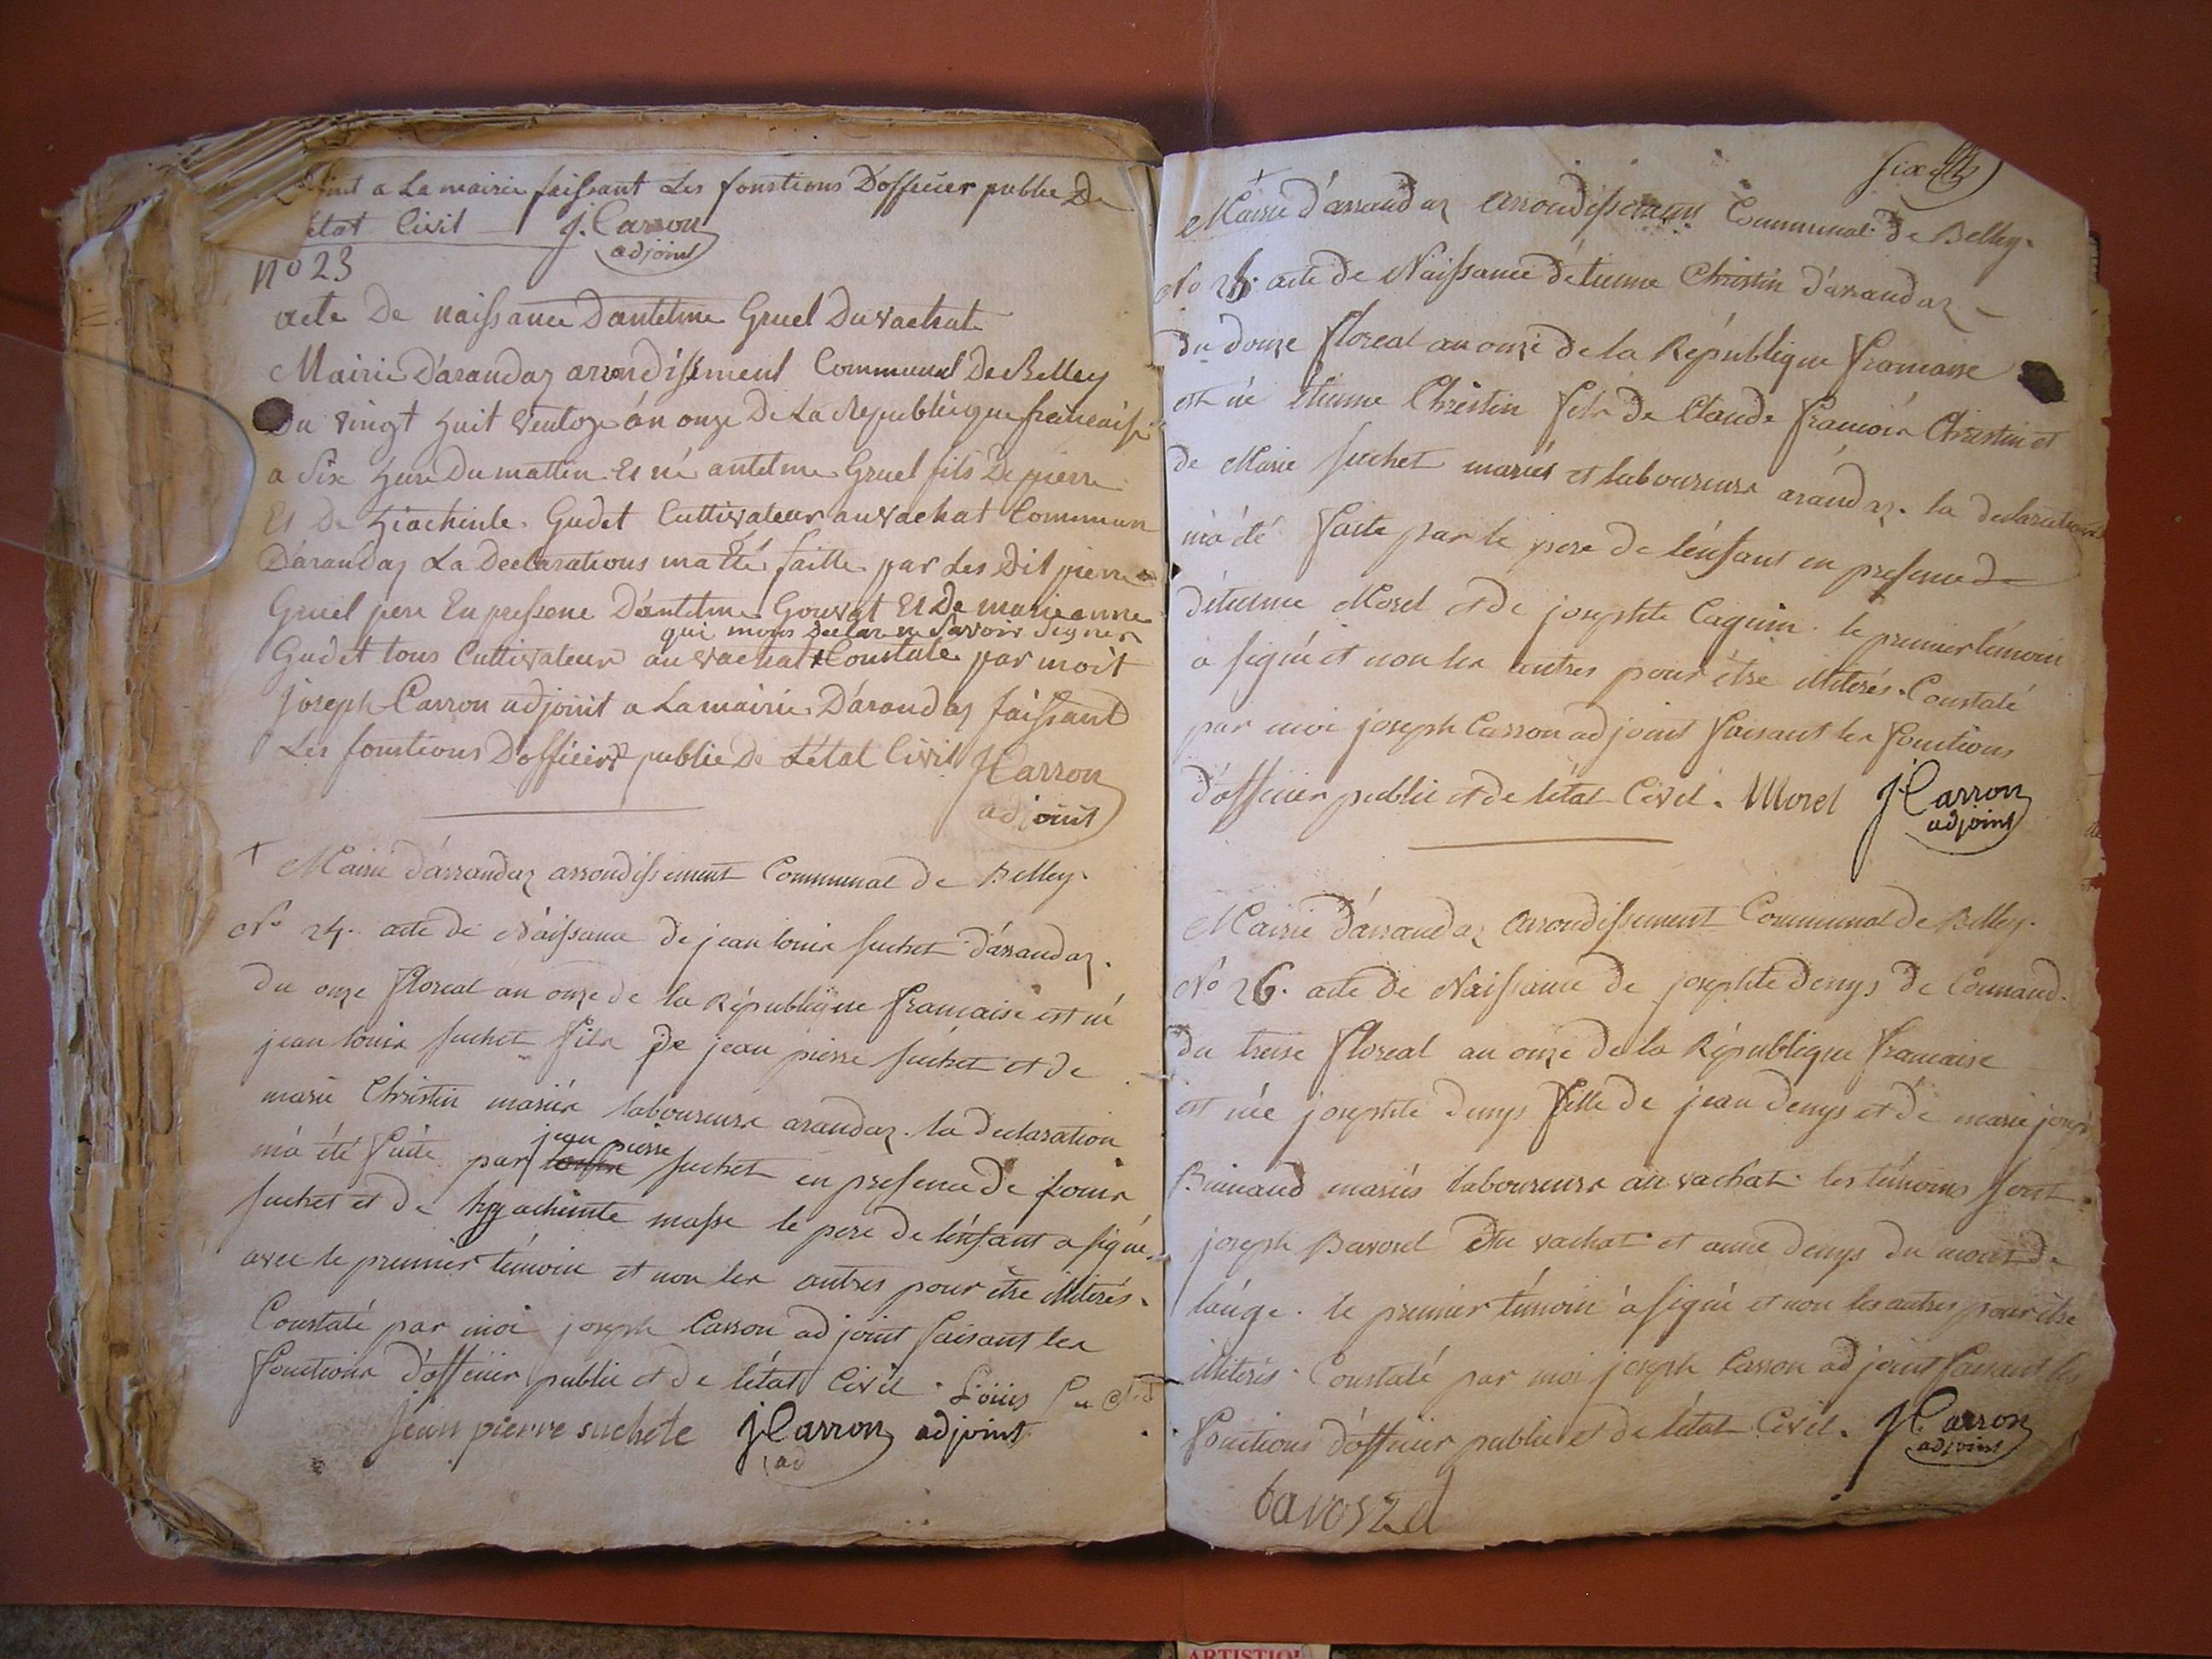 a La mairie faissant Les fonstions D'officier public De
état Civil J. Carron
adjoint
N° 23
acte De naissance D'antelme Gruel Du vachat
Mairie D'arandaz arrondissement Communal De Belley
Du vingt huit ventoze án onze De La Republique francaise
a Six heure Du mattin Es né antelme Gruel fils De pierre
Et De hiachinte Gudet Cuttivateur au vachat Commun
D'arandaz La Declarations ma été faitte par Les Dit pierre
Gruel pere En pressene D'antelme Gouvat Et De marie anne
qui mons declare ne Savoir Signer
Gudet tous Cuttivateur au vachat Constate par moit
Joseph Carron adjoint a La mairie D'arandaz faissant
Les fonstions D'officier public De L'état Civil JCarron
adjoint
+ Mairie d'arrandaz arrondissement Communal de Belley.
N° 24. acte de Naissance de jean louis suchet d'arrandaz.
du onze floreal an onze de la République francaise est né
jean louis suchet fils de jean pierre suchet et de
marie Christin mariés laboureurs arandaz. la declaration
jean pierre
m'a été faite par suchet en presence de louis
suchet et de hyacheinte masse le pere de l'enfant a signé
avec le premier témoin et non les autres pour être illiterés.
Constaté par moi joseph Carron adjoint faisant les
fonctions d'officier public et de l'état Civil. Loüis
jean pierre suchete JCarron adjoint
ad
six
+
Mairie d'arrandaz arrondissement Communal de Belley.
N° 25. acte de Naissance d'étienne Christin d'arrandaz
du douze floreal an onze de la République francaise
est né étienne Christin fils de Claude francois Christin et
de Marie suchet mariés et laboureurs arandaz. la declaration
m'a été faite par le pere de l'enfant en presence de
d'étienne Morel et de josephte Caguin. le premier témoin
a signé et non les autres pour être illiterés. Constaté
par moi joseph Carron adjoint faisant les fonctions
d'officier public et de l'état Civil. Morel JCarron
adjoint
Mairie d'arrandaz arrondissement Communal de Belley.
N° 26. acte de Naissance de josephte denys de Counand.
du treise floreal an onze de la République francaise
est née josephte denys fille de jean denys et de marie
mariés laboureurs au vachat. les témoins sont
joseph Bavorel du vachat et anne denys du mont de
lange. le premier témoin a signé et non les autres pour être
illiterés. Constaté par moi joseph Carron adjoint faisant les
fonctions d'officier public et de l'état Civil. JCarron
adjoint